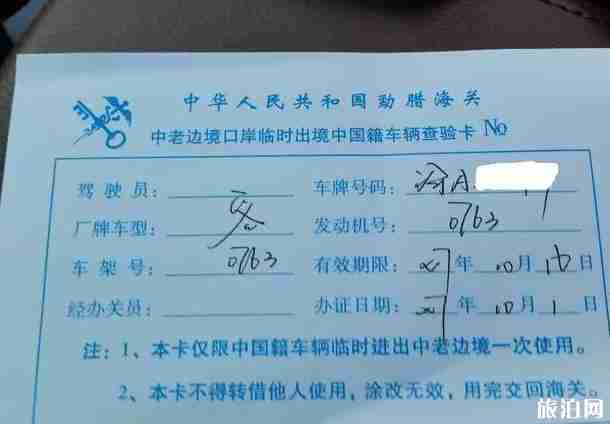 中华人民共和国勐腊海关
中老边境口岸临时出境中国籍车辆查验卡 No
驾驶员： 车牌号码：
厂牌车型：客 发动机号：0763
车架号：0763 有效期限： 年 10月 16日
经办关员： 办证日期： 年 10月 1日
注：1、本卡仅限中国籍车辆临时进出中老边境一次使用。
2、本卡不得转借他人使用，涂改无效，用完交回海关。
旅泊网